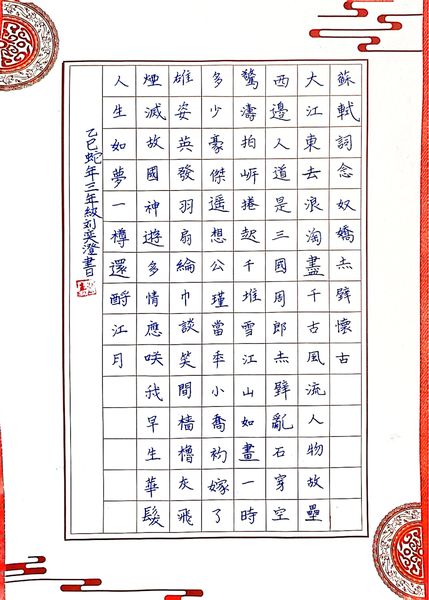 蘇軾詞念奴嬌赤壁懷古
大江東去浪淘盡千古風流人物故壘
西邊人道是三國周郎赤壁亂石穿空
驚濤拍岸捲起千堆雪江山如畫一時
多少豪傑遥想公瑾當年小喬初嫁了
雄姿英發羽扇綸巾談笑間檣櫓灰飛
煙滅故國神遊多情應咲我早生華髮
人生如夢一樽還酹江月
乙巳蛇年三年級刘奕澄書